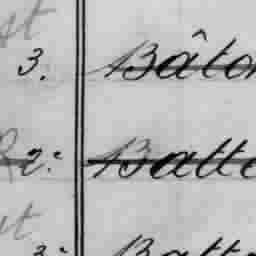 st
3. Bâton
2. Batte
ut
3. Batte